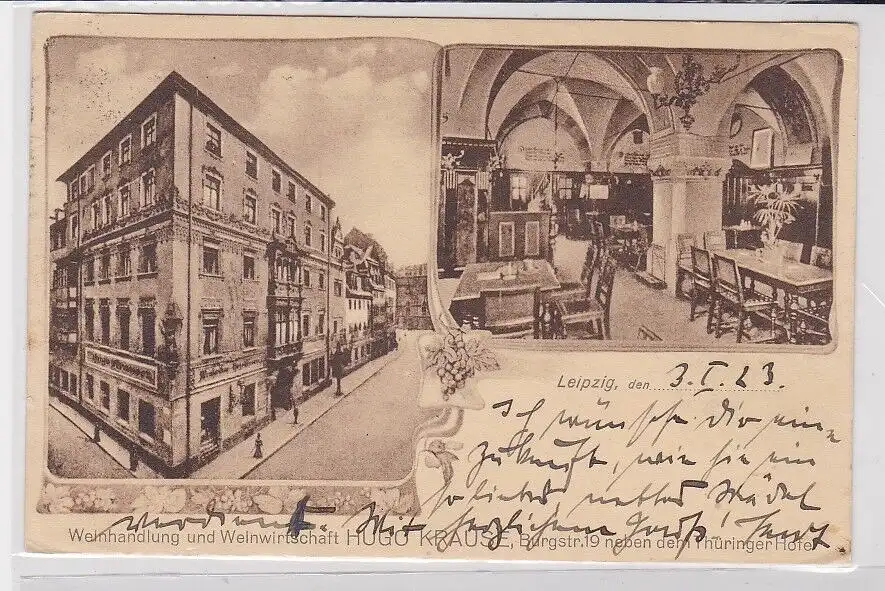 Leipzig, den 3.I.23.
Ich wünsche dir eine
Zukunft, wie sie ein
so liebes nettes Mädel
verdient. Mit herzlichem Gruß!
Weinhandlung und Weinwirtschaft HUGO KRAUSE, Burgstr. 19 neben dem Thüringer Hofe